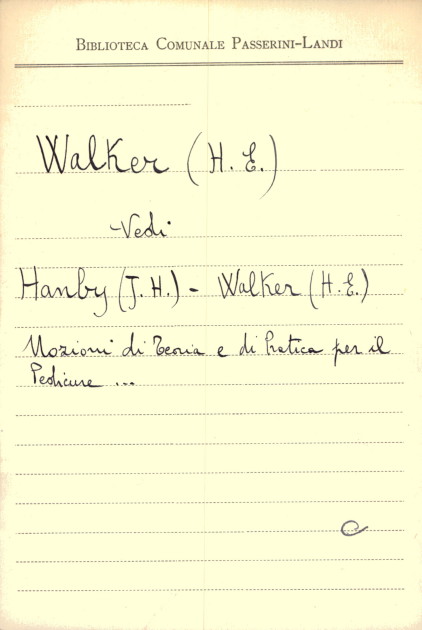 BIBLIOTECA COMUNALE PASSERINI-LANDI
Walker (H. E.)
Vedi
Hanby (J. H.) - Walker (H. E.)
Nozioni di Teoria e di Pratica per il
Pedicure ...